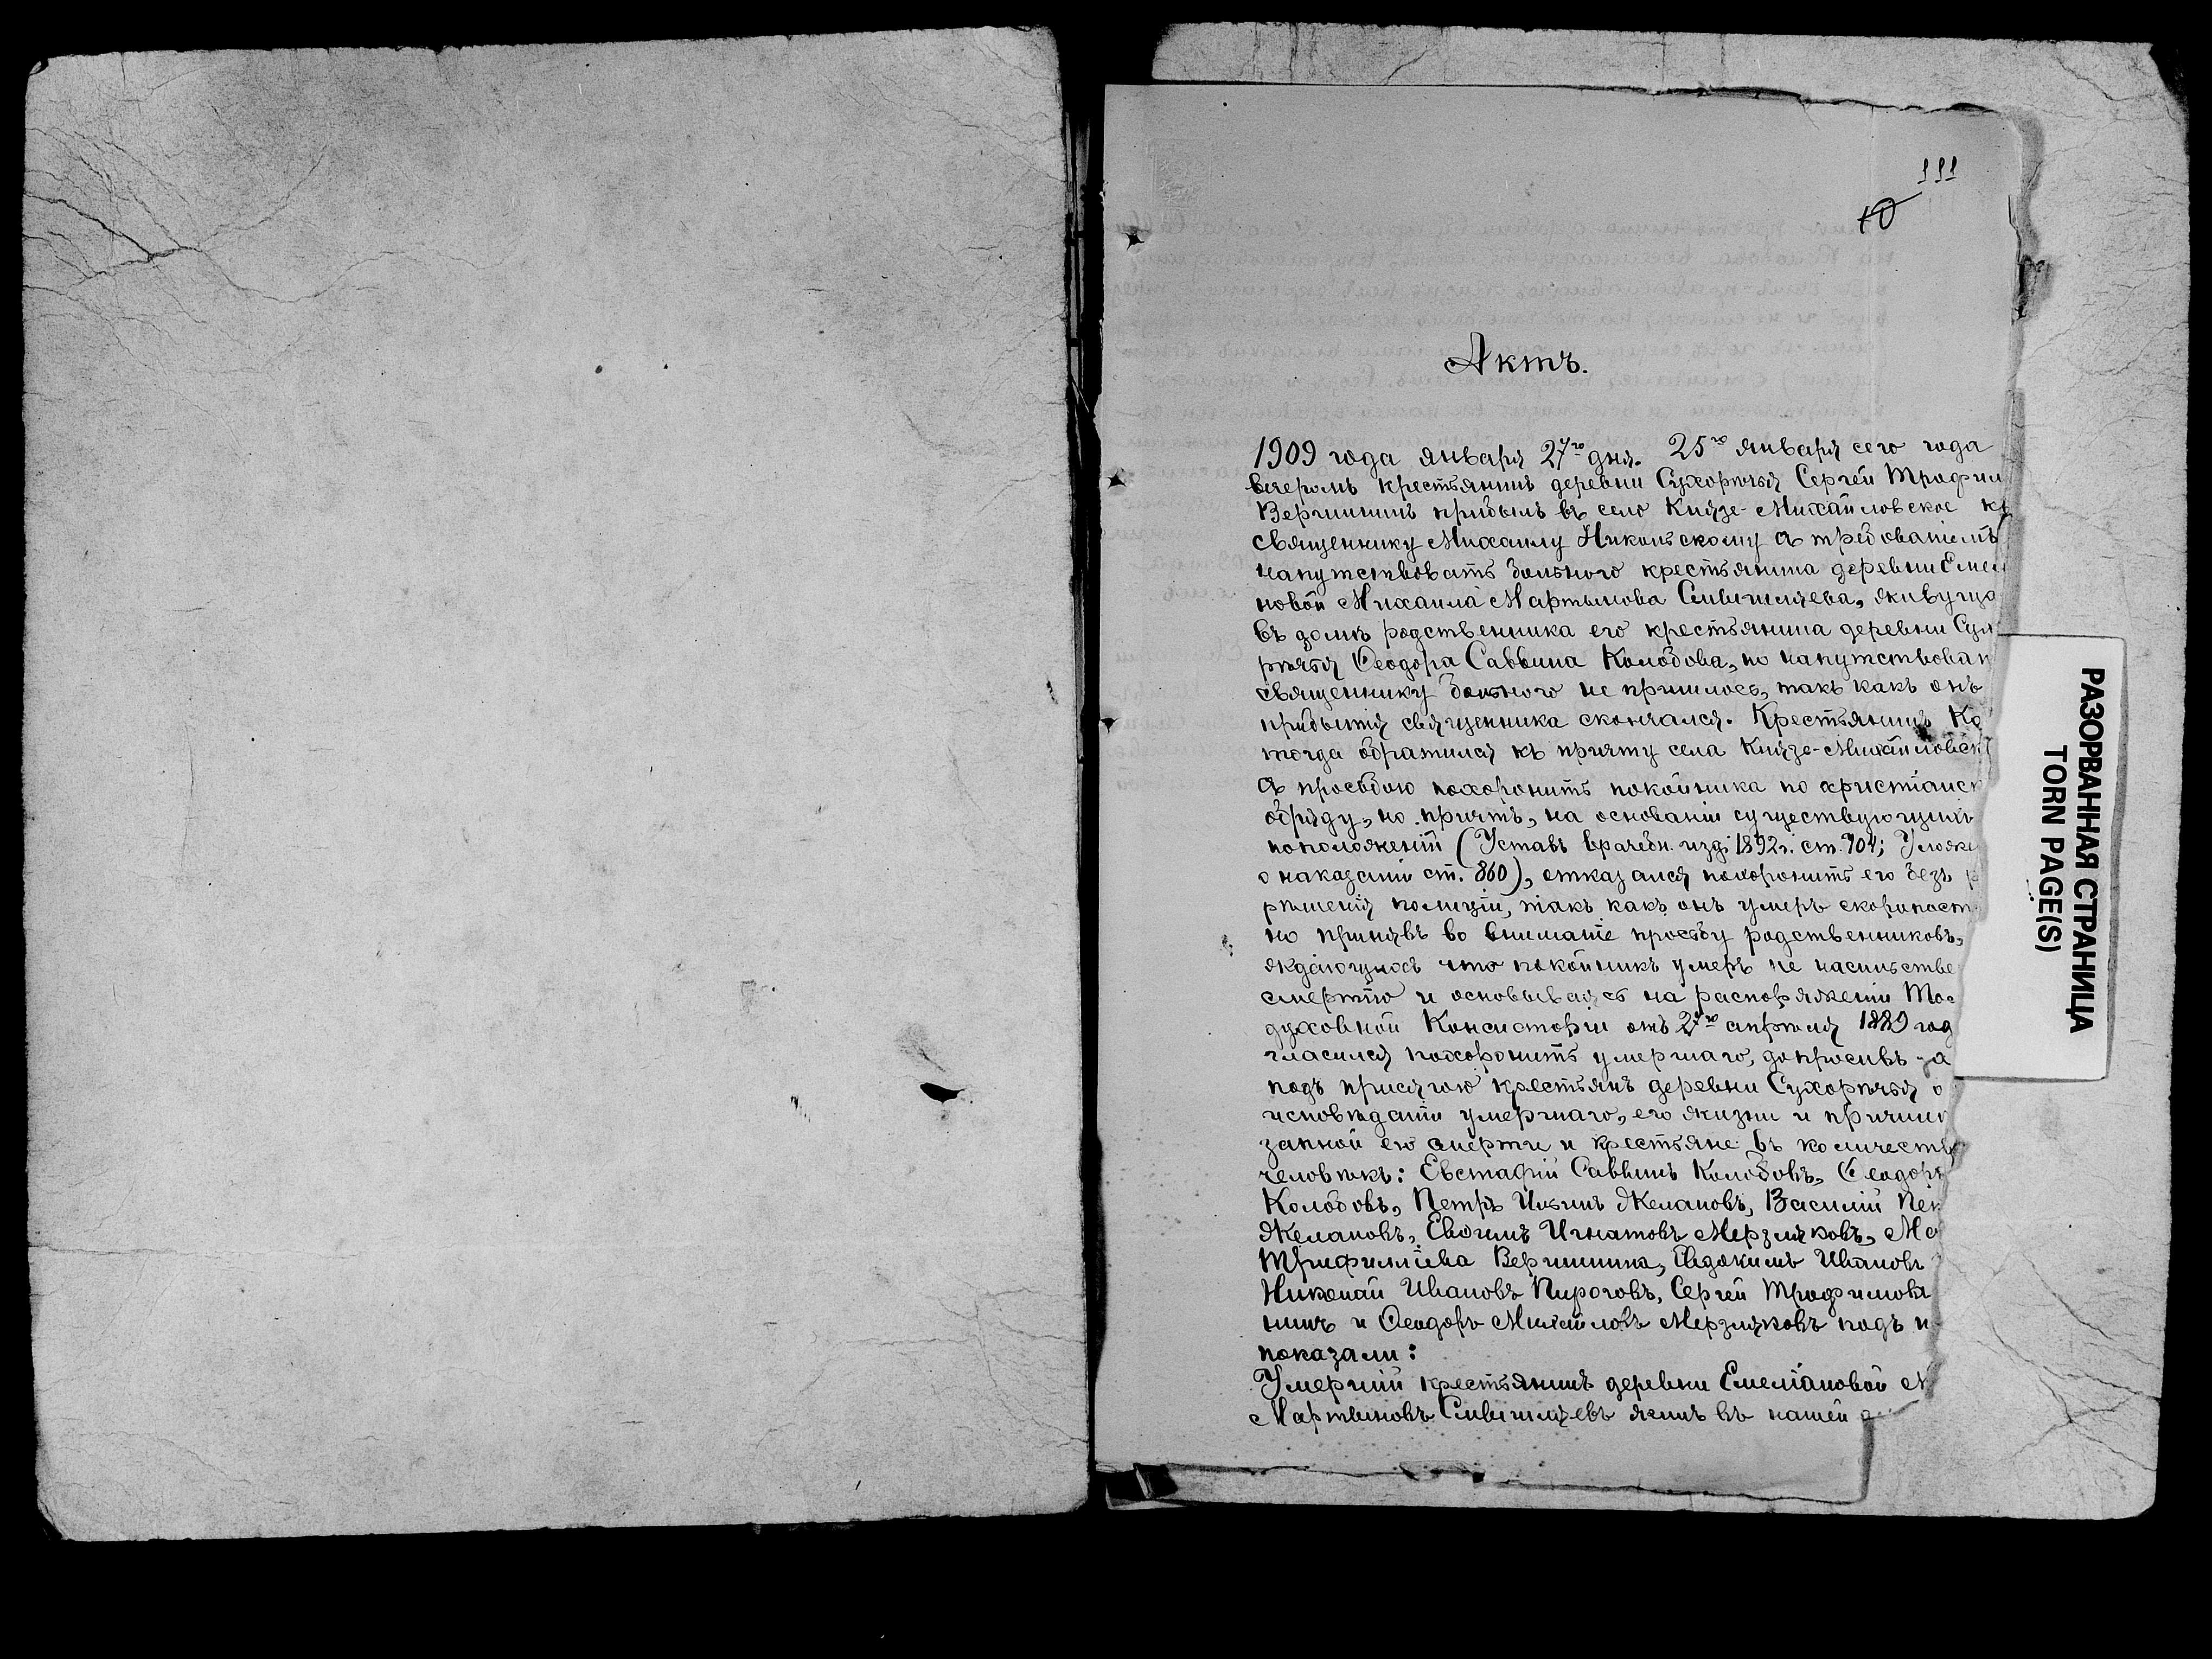 111
10
Актъ.
1909 года января 27го дня. 25го января сего года
вечеромъ крестьянинъ деревни Сухорѣчья Сергѣй Трофим
Вершининъ прибылъ въ село Князе-Михайловское къ
священнику Михаилу Никольскому съ требованіемъ
напутствовать больного крестьянина деревни Емел
новой Михаила Мартынова Сивишляева, живуща
въ домѣ родственника его крестьянина деревни Сух
рѣчья Ѳеодора Саввина Колобова, но напутствоват
священнику больного не пришлось, такъ какъ онъ
прибытія священника скончался. Крестьянинъ Ко
тогда обратился къ причту села Князе-Михайловск
съ просьбою похоронить покойника по христіанск
обряду, но причтъ, на основаніи существующихъ
поположеній (Уставъ врачебн. изд. 1892 г. ст. 704; Уложе
о наказаніи ст. 860), отказался похоронить его безъ р
рѣшенія полиціи, такъ какъ онъ умеръ скоропост
но принявъ во вниманіе просьбу родственниковъ,
что покойникъ умеръ не насильстве
смертію и основываясь на распоряженіи
духовной Консисторіи отъ 27го апрѣля 1889 год
гласился похоронить умершаго, допросивъ за
подъ присягою крестьянъ деревни Сухорѣчья о
исповѣданіи умершаго, его жизни и причин
запной его смерти и крестьяне въ количеств
человѣкъ: Евстафій Саввинъ Колобовъ, Ѳеодоръ
Колобовъ, Петръ Ильинъ Желановъ, Василій Пет
Желановъ, Евѳимъ Игнатовъ Мерзляковъ, Ма
Трифиліева Вершинина, Евдокимъ Ивановъ
Николай Ивановъ Пироговъ, Сергѣй Трофимовъ
нинъ и Ѳеодоръ Михайловъ Мерзляковъ подъ п
показали:
Умершій крестьянинъ деревни Емеліановой М
Мартыновъ Сивишляевъ жилъ въ нашей д
РАЗОРВАННАЯ СТРАНИЦА
TORN PAGE(S)